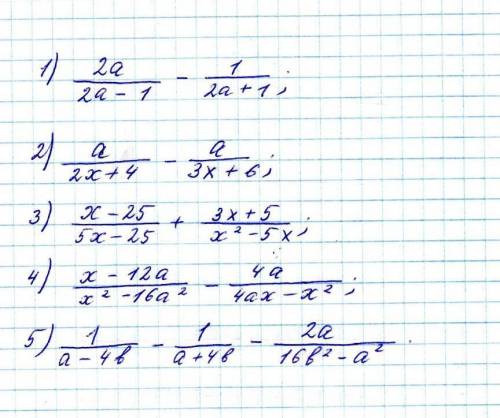 1) 2a/(2a - 1) - 1/(2a + 1);
2) a/(2x + 4) - a/(3x + 6);
3) (x - 25)/(5x - 25) + (3x + 5)/(x² - 5x);
4) (x - 12a)/(x² - 16a²) - 4a/(4ax - x²);
5) 1/(a - 4b) - 1/(a + 4b) - 2a/(16b² - a²).